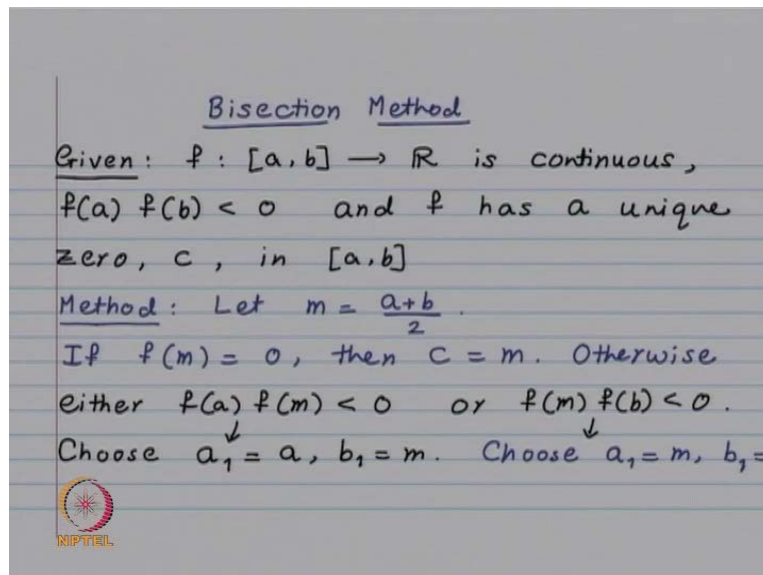 Bisection Method
Given: f : [a, b] → R is continuous,
f(a) f(b) < 0 and f has a unique
zero, c, in [a, b]
Method: Let m = a+b/2.
If f(m) = 0, then c = m. Otherwise
either f(a) f(m) < 0 or f(m) f(b) < 0.
↓ ↓
Choose a₁ = a, b₁ = m. Choose a₁ = m, b₁ =
NPTEL